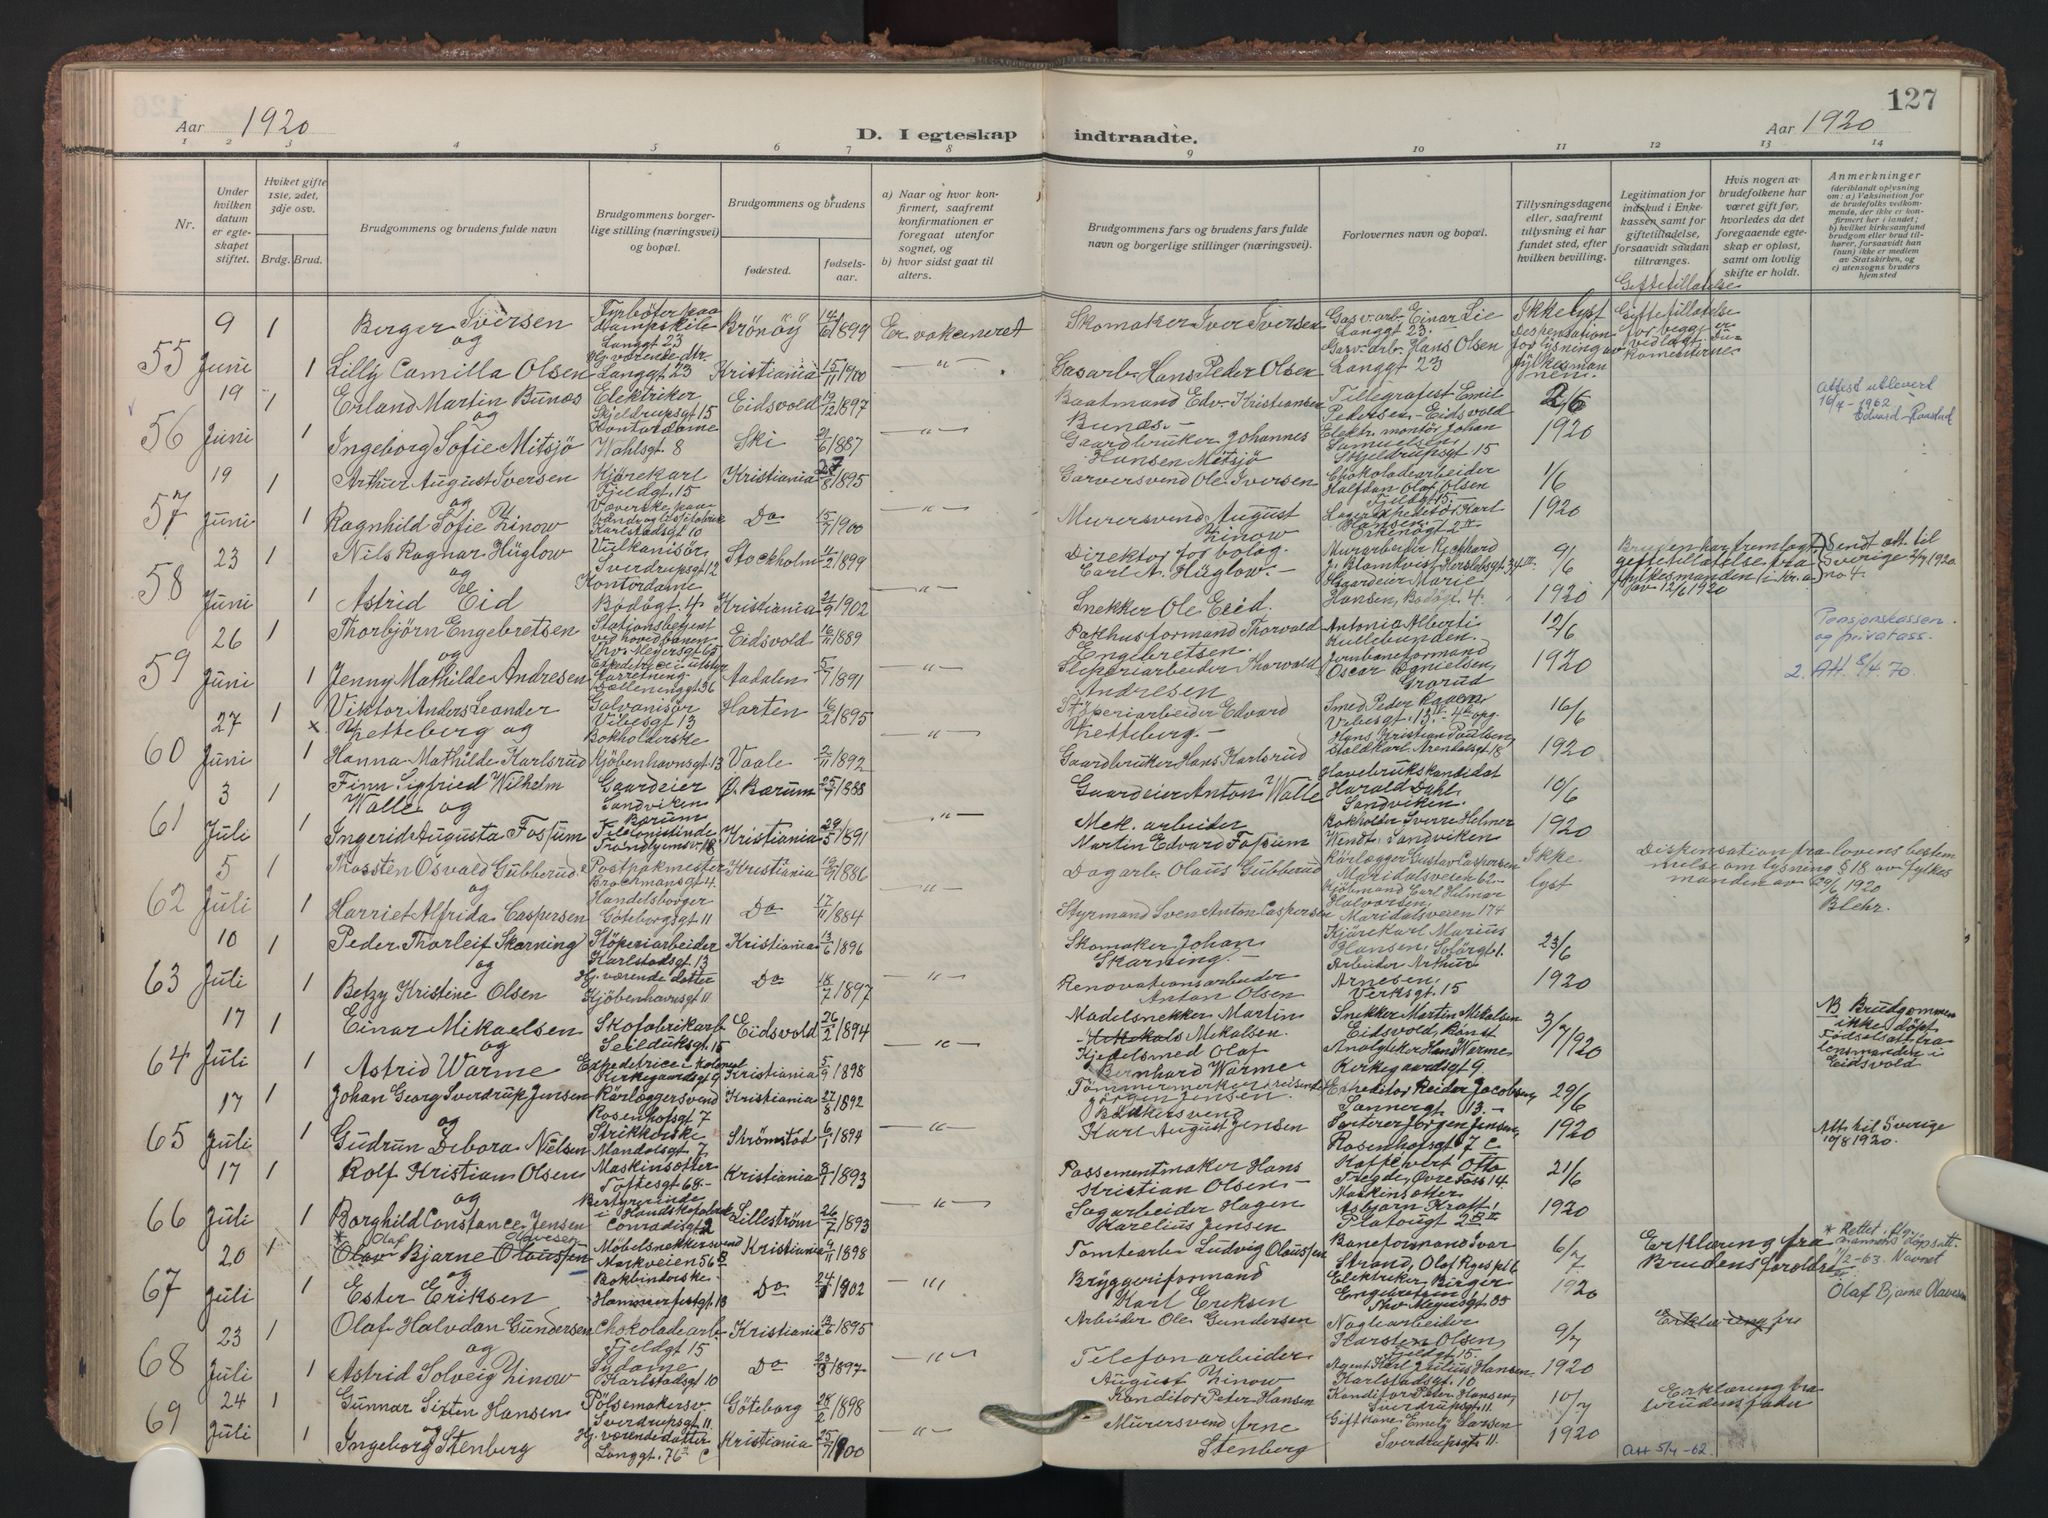 127
Aar 1920
D. I egteskap indtraadte.
Aar 1920
1 2 3 4 5 6 7 8 9 10 11 12 13 14
Nr.
Under hvilken datum er egteskapet stiftet.
Hvilket gifte 1ste, 2det, 3dje osv.
Brdg. Brud.
Brudgommens og brudens fulde navn
Brudgommens borgerlige stilling (næringsvei) og bopæl.
Brudgommens og brudens
fødested.
fødselsaar.
a) Naar og hvor konfirmert, saafremt konfirmationen er foregaat utenfor sognet, og
b) hvor sidst gaat til alters.
Brudgommens fars og brudens fars fulde navn og borgerlige stillinger (næringsvei).
Forlovernes navn og bopæl.
Tillysningsdagene eller, saafremt tillysning ei har fundet sted, efter hvilken bevilling.
Legitimation for indskud i Enkekassen samt for giftetilladelse, forsaavidt saadan tiltrænges.
Hvis nogen av brudefolkene har været gift før, hvorledes da det foregaaende egteskap er opløst, samt om lovlig skifte er holdt.
Anmerkninger
(deriblandt oplysning om: a) Vaksination for de brudefolks vedkommende, der ikke er konfirmert her i landet; b) hvilket kirkesamfund brudgom eller brud tilhører, forsaavidt han (hun) ikke er medlem av Statskirken, og c) utensogns bruders hjemsted
55 9 Juni 1 Berger Iversen Fyrbøter paa Dampskib Langgt 23 Brönöy 14/6 1899 Er vaksineret Skomaker Iver Iversen Gasv.arb. Einar Lie Langgt 23. Ikke lyst Giftetilladelse for begge
og
1 Lilly Camilla Olsen Hj. værende dtr. Langgt 23 Kristiania 15/11 1900 —"— Gasarb. Hans Peder Olsen Gasv.arb. Hans Olsen Langgt 23
56 19 Juni 1 Erland Martin Bunæs Elektriker Skjeldrupsgt 15 Eidsvold 12/12 1897 Baatmand Edv. Kristiansen Bunæs.- Tillegrafest Emil Pedersen - Eidsvold 2/6 Attest utlevert 16/7-1962
og
1 Ingeborg Sofie Mitsjö Kontordame Wahlsgt 8 Ski 21/6 1887 —"— Gaardbruker Johannes Hansen Mitsjö Elektr. montör Johan Samuelsen, Skjeldrupsgt 15 1920
57 19 Juni 1 Arthur August Iversen Kjørekarl Fjeldgt. 15 Kristiania 27/8 1895 Garversvend Ole Iversen Chokoladearbeider Halfdan Olaf Olsen Fjeldgt 15.- 1/6
og
1 Ragnhild Sofie Zinow Væverske Karlstadsgt 10 Do 15/7 1900 —"— Murersvend August Zinow Karl Hansen 1920
58 23 Juni 1 Nils Ragnar Hüglow Vulkanisör Sverdrupsgt 12 Stockholm 11/2 1899 Direktör for bolag. Carl A. Hüglow.- 9/6 Sendt att. til Sverige 2/7 1920. no 4.
og
1 Astrid Eid Kontordame Bodögt. 4 Kristiania 21/9 1902 —"— Snekker Ole Eeid. Gaardeier Marie Hansen, Bodögt. 4. 1920 fylkesmanden i Kr.a av 12/6 1920
59 26 Juni 1 Thorbjörn Engebretsen Stationsbetjent ved hovedbanen Thv. Meyersgt 65 Eidsvold 16/11 1889 Pakhusformand Thorvald Engebretsen. Antonia Alberti Kullebunden. 12/6 Pensjonskassen og privatass.
og
1 Jenny Mathilde Andresen Aadalen 5/7 1891 Thorvald Andresen Jernbaneformand Oscar Danielsen, Grorud 1920 2. Att 8/4 70.
60 27 Juni 1 x Viktor Anders Leander Zetteberg og Galvanisör Vibesgt. 13 Horten 16/2 1895 Stöperiarbeider Edvard Zetteberg.- Smed Peder Vibesgt. 13. 16/6
1 Hanna Mathilde Karlsrud Bokholderske Kjöbenhavnsgt. 13 Vaale 2/11 1892 —"— Gaardbruker Hans Karlsrud Hans Kristian Paulsen, Staldkarl Arendalsgt 18 1920
61 3 Juli 1 Finn Sigfried Wilhelm Walle og Gaardeier Sandviken Bærum Ø. Bærum 25/7 1888 Gaardeier Anton Walle Havebrukskandidat Harald Dahl Sandviken. 10/6
1 Ingerid Augusta Fossum Telefonistinde Trondhjemsv. 18 Kristiania 29/5 1891 —"— Mek. arbeider Martin Edvard Fossum Bokholder Sverre Helmer Wendt, Sandviken 1920
62 5 Juli 1 Osvald Gubberud Postpakmester Brochmansgt 4. Kristiania 19/9 1886 Dagarb. Olaus Gubberud Rörlægger Gustav Caspersen Maridalsveien 62.- Ikke lyst Dispensation fra lovens bestemmelse om lysning § 18 av fylkesmanden av 29/6 1920 Blehr.
og
1 Harriet Alfrida Caspersen Göteborgsgt 11 Do 17/11 1884 —"— Styrmand Sven Anton Caspersen Kjöbmand Carl Hilmar Halvorsen, Maridalsveien 174
63 10 Juli 1 Peder Thorleif Skarning Stöperiarbeider Karlstadsgt 13 Kristiania 13/6 1896 Skomaker Johan Skarning.- Kjörekarl Marius Hansen, Solörgt 1. 23/6
og
1 Betzy Kristine Olsen Hj. værende datter Kjöbenhavnsgt 11 Do 18/7 1897 —"— Renovationsarbeider Anton Olsen Arbeider Arthur Arnesen. Verksgt. 15 1920
64 17 Juli 1 Einar Mikaelsen Skofabrikarb Seilduksgt. 15 Eidsvold 26/2 1894 Modelsnekker Martin Mekalsen. Snekker Martin Mikalsen Eidsvold, Bönst 3/7 1920 NB Brudgommen ikke döpt. Födselsatt. fra lensmanden i Eidsvold
og
1 Astrid Warme Expedetrice i kolonial Kirkegaardsgt 9 Kristiania 5/9 1898 —"— Kjedelsmed Olaf Bernhard Warme Analytiker Hans Warme Kirkegaardsgt 9.
65 17 Juli 1 Johan Georg Sverdrup Jensen Rörlæggersvend Rosenhofsgt 7 Kristiania 27/8 1892 Jörgen Jensen. Expeditör Reidar Jacobsen, Sannergt 13.- 29/6 Att. til Sverige 10/8 1920.
og
1 Gudrun Debora Nielsen Strikkerske Mandalsgt 7 Strömstad 6/1 1894 —"— Bakersvend Karl August Jensen Sorterer Jörgen Jensen, Rosenhofsgt 7 c 1920
66 17 Juli 1 Rolf Kristian Olsen Maskinsetter Toftesgt 68.- Kristiania 8/7 1893 Possementmaker Hans Kristian Olsen.- Otto Tregde, Øvre Foss 14 21/6
og
1 Borghild Constance Jensen Conradisgt 2 Lilleström 26/7 1893 —"— Sagarbeider Hagen Karelius Jensen Maskinsetter Asbjörn Kraft, Platougt 2B II 1920
67 20 Juli 1 * Olaf Olavesen Olav Bjarne Olaussen Möbelsnekkersvend Markveien 56 B Kristiania 9/11 1898 Tomtearb. Ludvig Olaussen Baneformand Ivar Strand, Olaf Ryes pl 6 6/7 Erklæring fra Brudens foreldre * Rettet i flg. mannens döpsatt. 1/2-63. Navnet Olaf Bjarne Olavesen
og
1 Ester Eriksen Bokbinderske Hammerfestgt. 13 Do 24/1 1902 —"— Bryggeriformand Karl Eriksen Elektriker Birger Engebretsen Thv. Meyersgt. 85 1920
68 23 Juli 1 Olaf Halvdan Gundersen Chokoladearb. Fjeldgt 15 Kristiania 1895 Arbeider Ole Gundersen Naglearbeider Karsten Olsen, Fjeldgt 15. 9/7 Erklæring fra
og
1 Astrid Solveig Zinow Sydame Karlstadsgt 10 Do 23/3 1897 —"— Telefonarbeider August Zinow Agent Karl Julius Hansen, Karlstadsgt. 10 1920
69 24 Juli 1 Gunnar Sixten Hansen Pölsemakersv. Sverdrupsgt 11. Göteborg 28/2 1898 Konditor Peter Hansen Konditor Peter Hansen, Sverdrupsgt 11. 10/7 Erklæring fra brudens fader
og
1 Ingeborg Stenberg Hj. værende datter Langgt. 76 c Kristiania 25/7 1900 —"— Murersvend Arne Stenberg Gift Kone Emely Larsen Sverdrupsgt 11. 1920 Att 5/4-62.